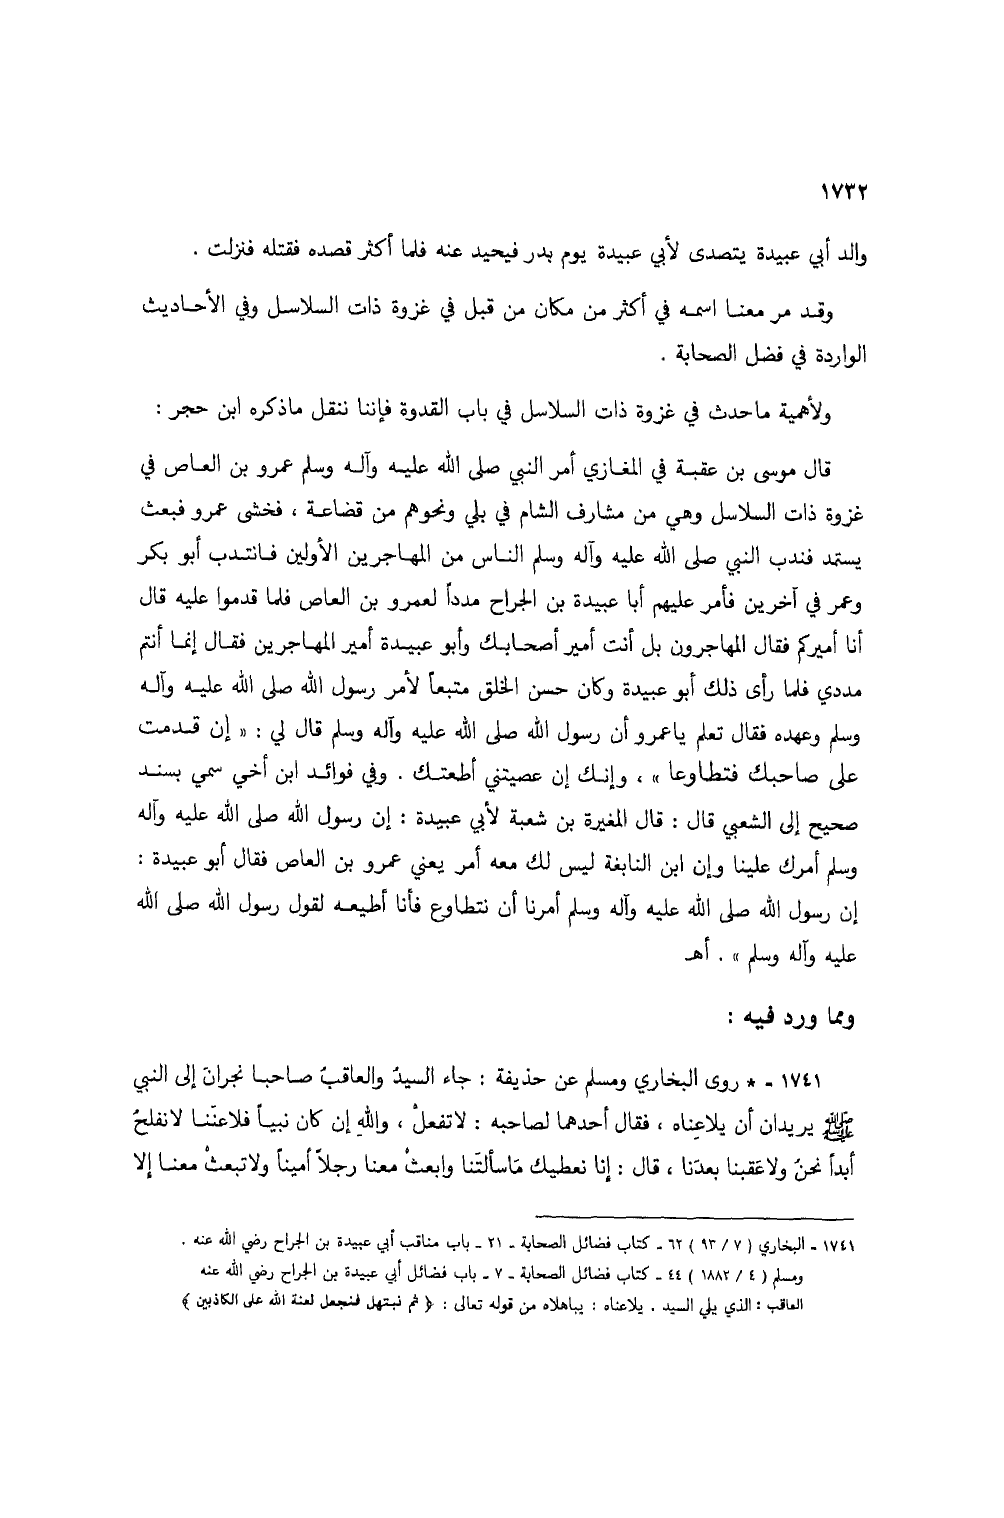 ١٧٣٢
والد أبي عبيدة يتصدى لأبي عبيدة يوم بدر فيحيد عنه فلما أكثر قصده فقتله فنزلت .
وقد مر معنا اسمه في أكثر من مكان من قبل في غزوة ذات السلاسل وفي الأحاديث
الواردة في فضل الصحابة .
ولأهمية ماحدث في غزوة ذات السلاسل في باب القدوة فإننا ننقل ماذكره ابن حجر :
قال موسى بن عقبة في المغازي أمر النبي صلى الله عليه وآله وسلم عمرو بن العاص في
غزوة ذات السلاسل وهي من مشارف الشام في بلي ونحوهم من قضاعة ، فخشى عمرو فبعث
يستمد فندب النبي صلى الله عليه وآله وسلم الناس من المهاجرين الأولين فانتدب أبو بكر
وعمر في آخرين فأمر عليهم أبا عبيدة بن الجراح مدداً لعمرو بن العاص فلما قدموا عليه قال
أنا أميركم فقال المهاجرون بل أنت أمير أصحابك وأبو عبيدة أمير المهاجرين فقال إنما أنتم
مددي فلما رأى ذلك أبو عبيدة وكان حسن الخلق متبعاً لأمر رسول الله صلى الله عليه وآله
وسلم وعهده فقال تعلم ياعمرو أن رسول الله صلى الله عليه وآله وسلم قال لي : « إن قدمت
على صاحبك فتطاوعا » ، وإنك إن عصيتني أطعتك . وفي فوائد ابن أخي سمي بسند
صحيح إلى الشعبي قال : قال المغيرة بن شعبة لأبي عبيدة : إن رسول الله صلى الله عليه وآله
وسلم أمرك علينا وإن ابن النابغة ليس لك معه أمر يعني عمرو بن العاص فقال أبو عبيدة :
إن رسول الله صلى الله عليه وآله وسلم أمرنا أن نتطاوع فأنا أطيعه لقول رسول الله صلى الله
عليه وآله وسلم » . أهـ
ومما ورد فيه :
١٧٤١ - * روى البخاري ومسلم عن حذيفة : جاء السيدُ والعاقبُ صاحبا نجرانَ إلى النبي
ﷺ يريدان أن يلاعِناه ، فقال أحدهما لصاحبه : لاتفعلْ ، واللهِ إن كان نبياً فلاعنّنا لانفلحُ
أبداً نحنُ ولاعَقبنا بعدَنا ، قال : إنا نعطيك مَاسألتَنا وابعثْ معنا رجلاً أميناً ولاتبعثْ معنا إلا
١٧٤١ - البخاري ( ٧ / ٩٣ ) ٦٢ - كتاب فضائل الصحابة - ٢١ - باب مناقب أبي عبيدة بن الجراح رضي الله عنه .
ومسلم ( ٤ / ١٨٨٢ ) ٤٤ - كتاب فضائل الصحابة - ٧ - باب فضائل أبي عبيدة بن الجراح رضي الله عنه
العاقب : الذي يلي السيد . يلاعناه : يباهلاه من قوله تعالى : ﴿ ثم نبتهل فنجعل لعنة الله على الكاذبين ﴾